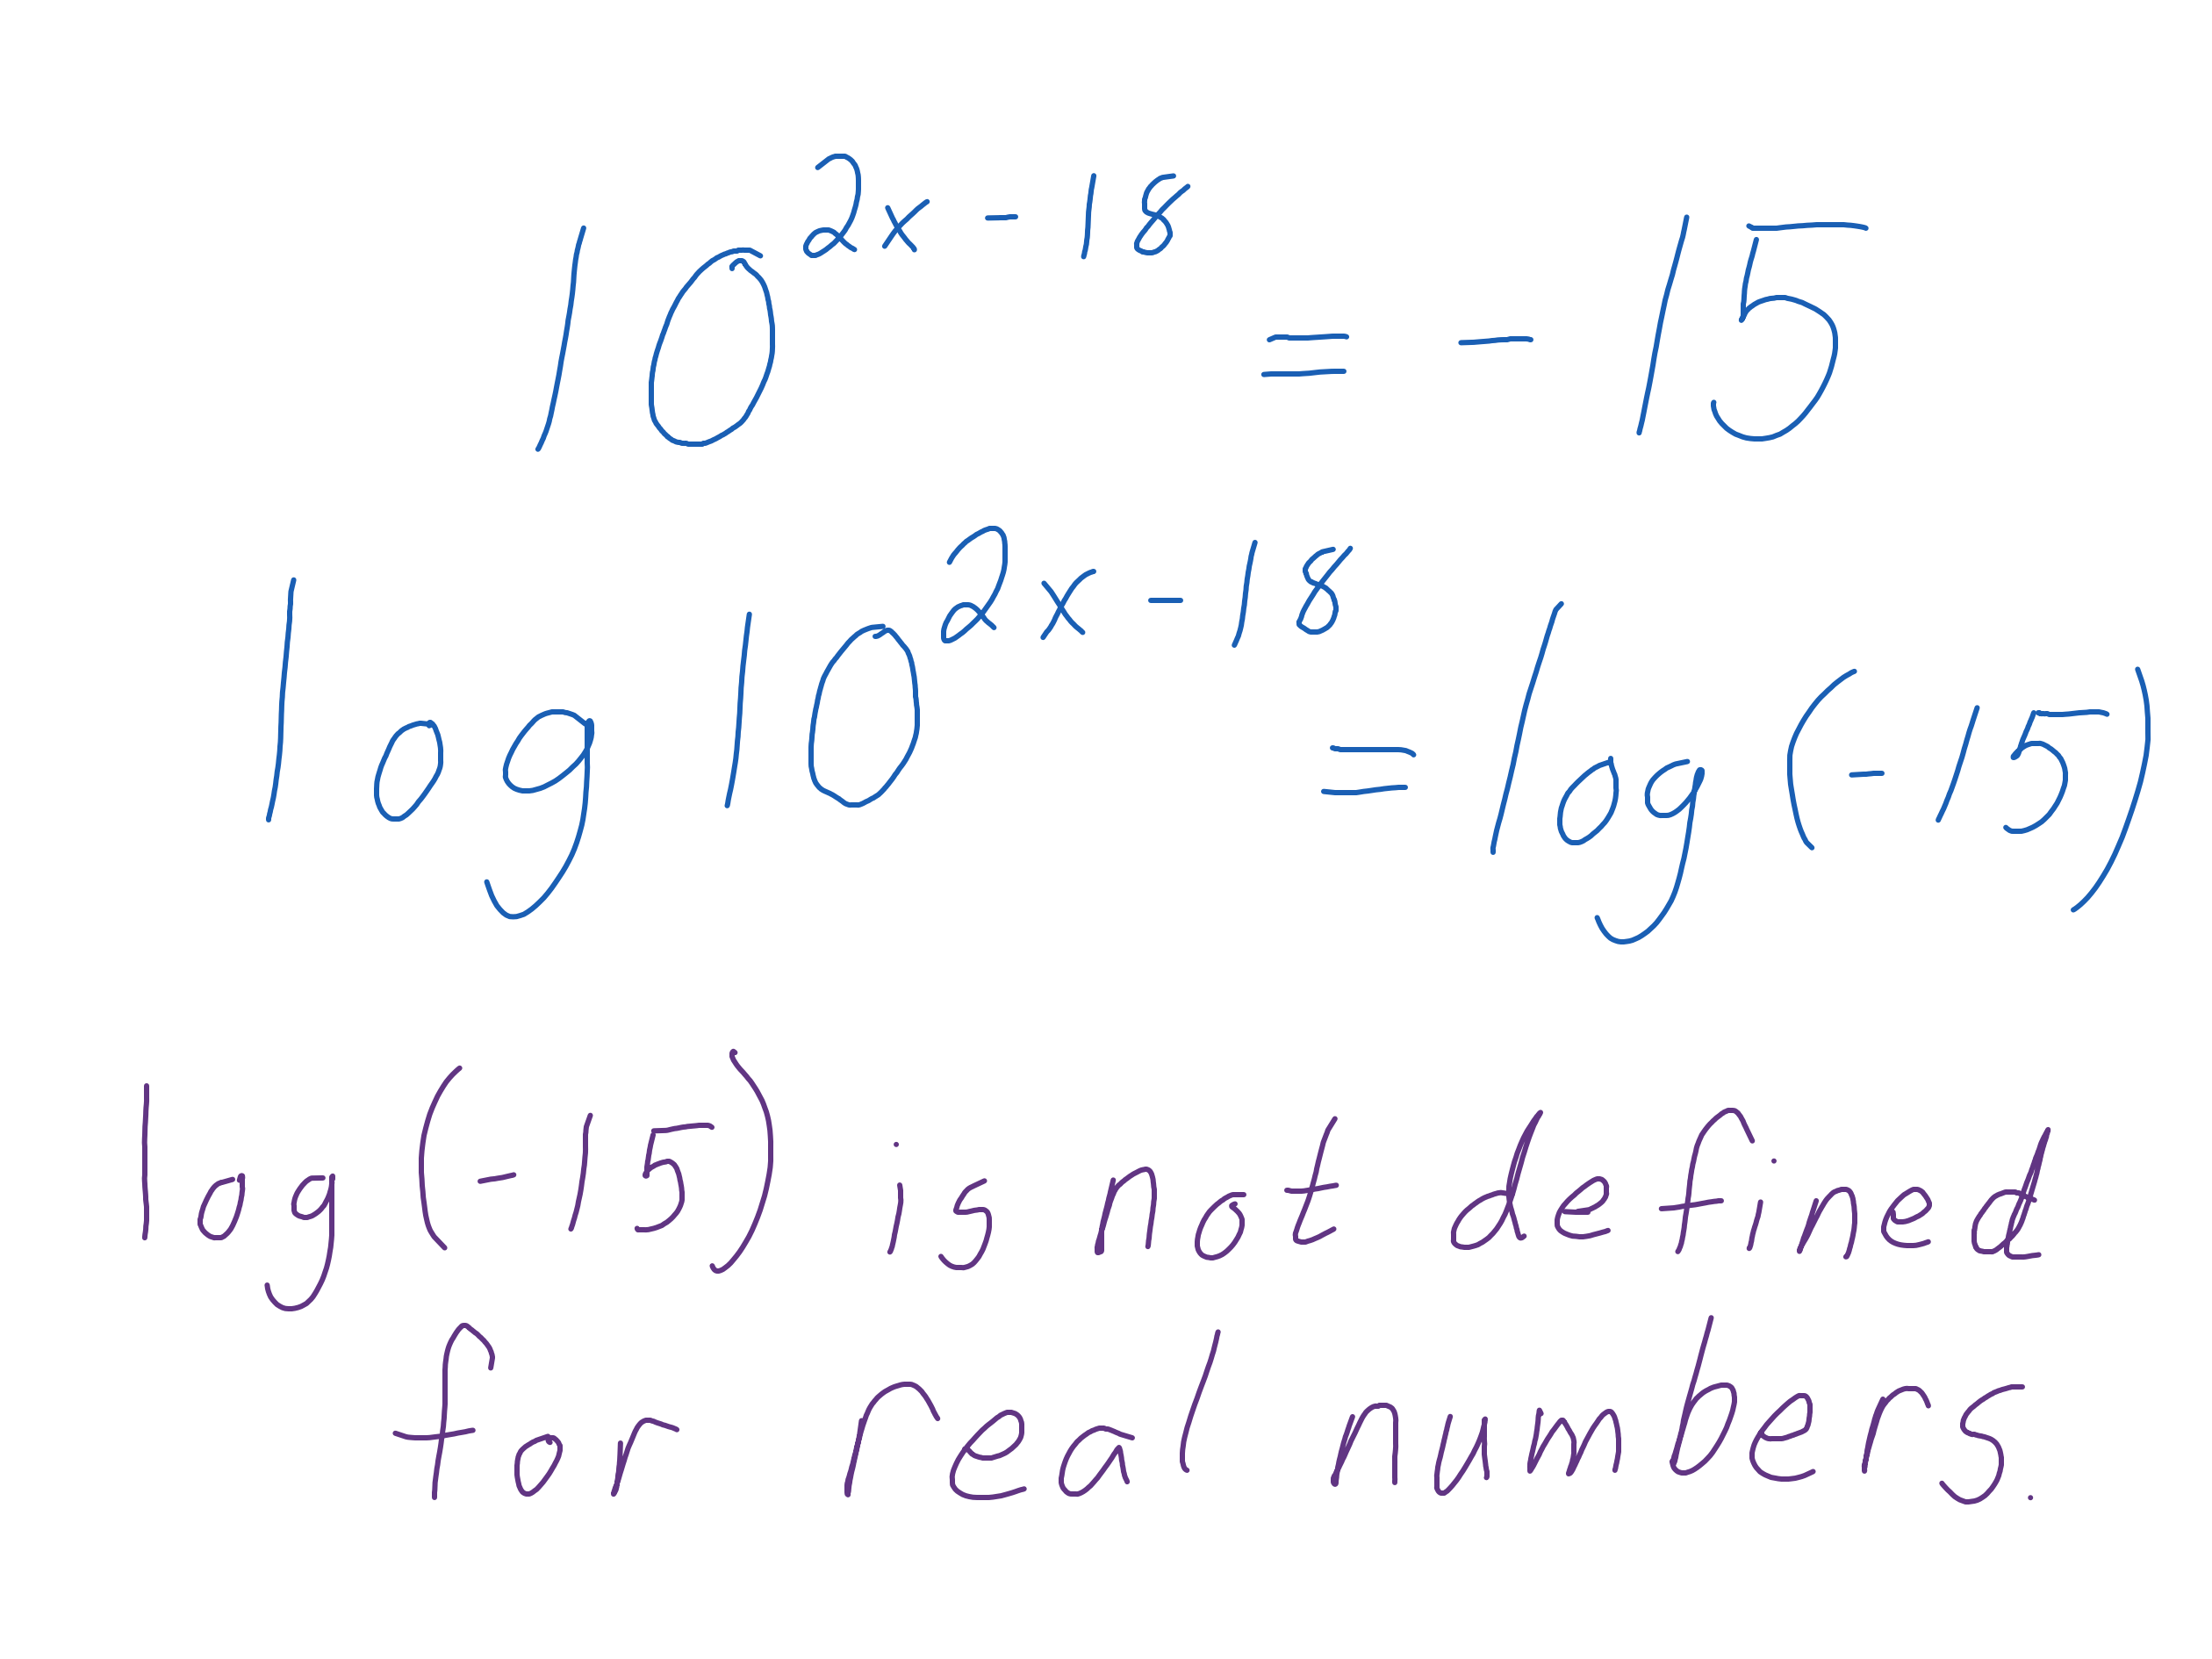 10^{2x - 18} = - 15
log 10^{2x - 18} = log (- 15)
log (- 15) is not defined
for real numbers.